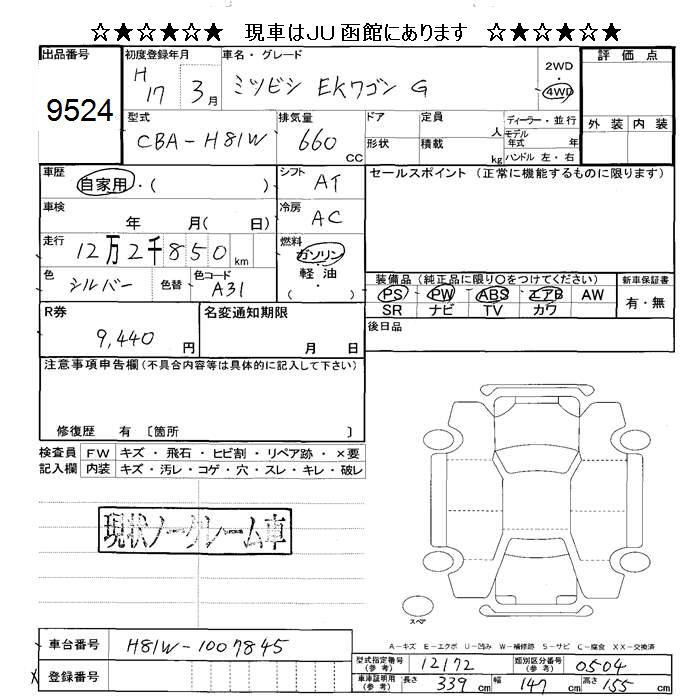 ☆★☆★☆★ 現車はJU函館にあります ☆★☆★☆★
出品番号 9524
初度登録年月 H17 3月
車名・グレード ミツビシ EKワゴン G
2WD
4WD
評価点
外装 内装
型式 CBA-H81W
排気量 660 CC
ドア
形状
定員 人
積載 kg
ディーラー・並行
モデル年式 年
ハンドル 左・右
車歴 自家用・( )
シフト AT
セールスポイント(正常に機能するものに限ります)
車検 年 月( 日)
冷房 AC
走行 12万2千850km
燃料 ガソリン・軽油・( )
色 シルバー 色替 色コード A31
装備品(純正品に限り○をつけてください)
PS PW ABS エアB AW
SR ナビ TV カワ
新車保証書
有・無
後日品
R券 9,440円
名変通知期限 月 日
注意事項申告欄(不具合内容等は具体的に記入して下さい)
修復歴 有 〔箇所 〕
検査員記入欄
FW キズ・飛石・ヒビ割・リペア跡・×要
内装 キズ・汚レ・コゲ・穴・スレ・キレ・破レ
現状ノークレーム車
スペア
車台番号 H81W-1007845
A-キズ E-エクボ U-凹み W-補修跡 S-サビ C-腐食 XX-交換済
X 登録番号
型式指定番号(参考) 12172 類別区分番号(参考) 0504
車庫証明用(参考) 長さ 339cm 幅 147cm 高さ 155cm